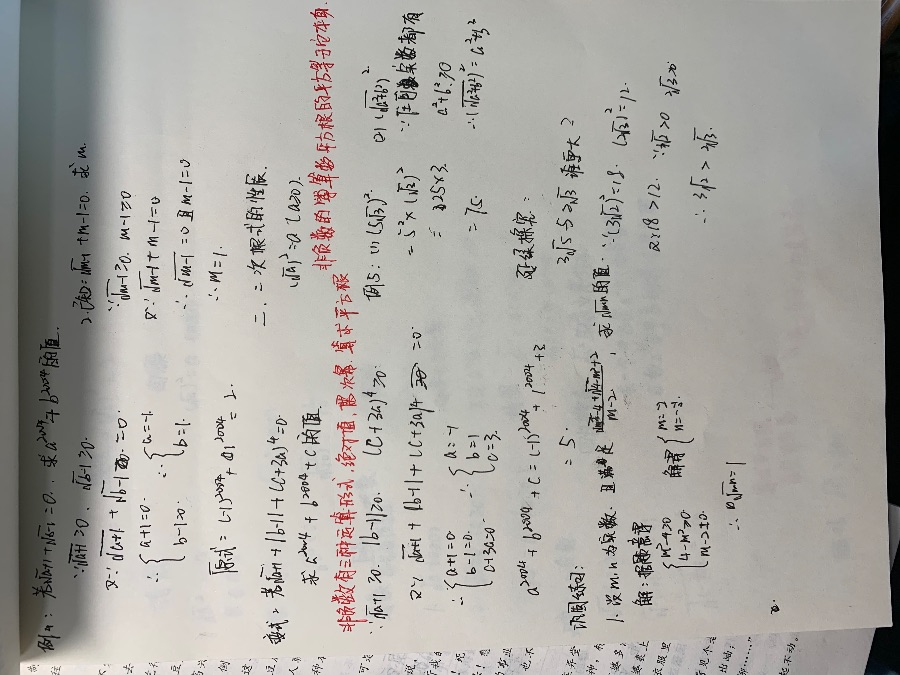 例4: 若√a+1 + √b-1 = 0. 求a²⁰⁰⁴+b²⁰⁰⁴的值.
∵√a+1 ≥0. √b-1 ≥0.
又∵√a+1 + √b-1 =0
∴{a+1=0. b-1=0 ∴{a=-1. b=1.
原式=(-1)²⁰⁰⁴+1²⁰⁰⁴=2.
变式: 若√a+1+|b-1|+(c+3a)⁴=0.
求a²⁰⁰⁴+b²⁰⁰⁴+c的值.
非负数有三种运算形式.绝对值,偶次幂.算术平方根
∵√a+1 ≥0. |b-1|≥0. (c+3a)⁴≥0.
又∵√a+1+|b-1|+(c+3a)⁴=0
∴{a+1=0 b-1=0. c+3a=0. ∴{a=-1 b=1 c=3.
a²⁰⁰⁴+b²⁰⁰⁴+c=(-1)²⁰⁰⁴+1²⁰⁰⁴+3
=5.
巩固练习:
1.设m.n为实数.且满足 , 求√mn的值.
解:
{m²-4≥0 4-m²≥0 m-2≠0. 解得{
∴√mn=
2. 已知:√m-1+m-1=0. 求m.
∵√m-1≥0. m-1≥0
又∵√m-1+m-1=0
∴√m-1=0且m-1=0
∴m=1.
二.二次根式的性质.
(√a)²=a (a≥0).
非负数的算术平方根的平方等于它本身.
例5: (1) (5√3)².
=5²×(√3)²
=25×3.
=75.
(2) (√a²+b²)².
∵任何实数都有
a²+b²≥0
∴(√a²+b²)²=a²+b²
延续探究:
3√2与2√3谁更大?
∵(3√2)²=18. (2√3)²=12.
又∵18>12. ∵3√2>0 2√3>0
∴3√2>2√3.